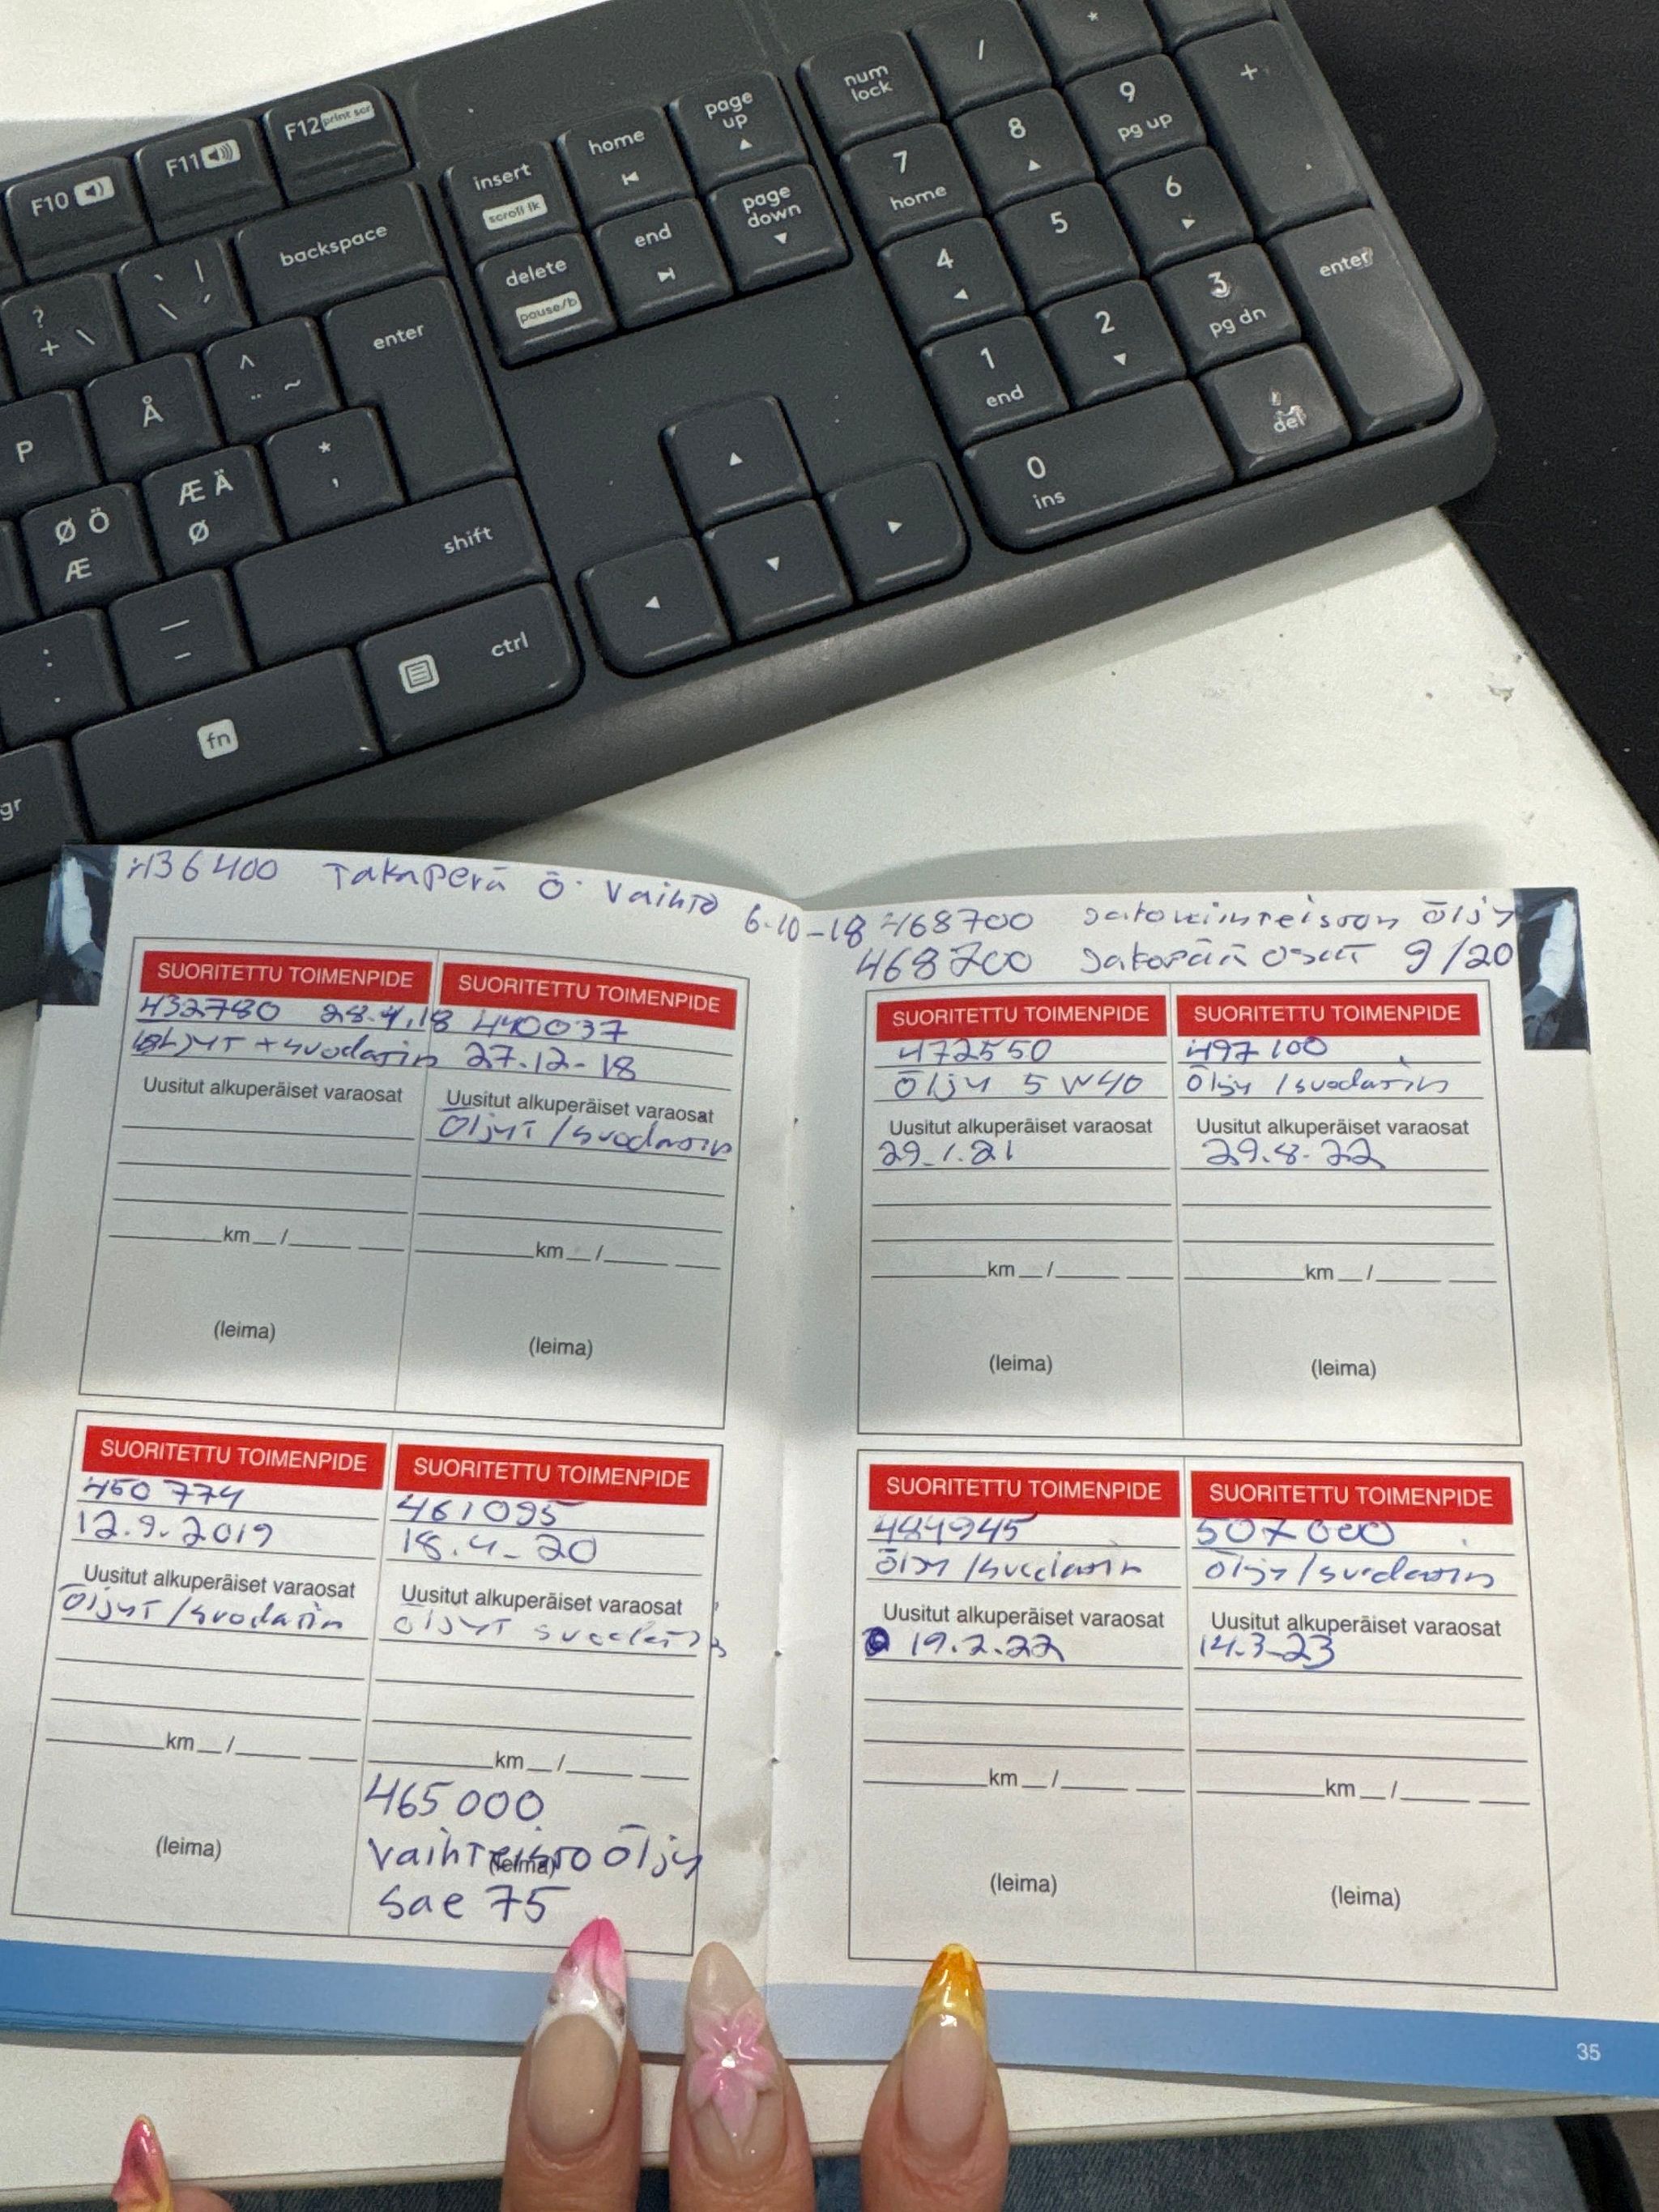 F10
F11
F12 print scr
insert
scroll lk
home
page up
num lock
/
*
?
+ \
backspace
delete
pause/b
end
page down
7 home
8
9 pg up
+
P
Å
^
¨ ~
enter
4
5
6
Ø Ö
Æ
Æ Ä
Ø
*
,
1 end
2
3 pg dn
enter
:
.
shift
0 ins
del
gr
fn
ctrl
436400 Takaperä ö. vaihto 6.10-18
SUORITETTU TOIMENPIDE
432780 28.4.18
+ suodatin
Uusitut alkuperäiset varaosat
km __/
(leima)
SUORITETTU TOIMENPIDE
440037
27.12-18
Uusitut alkuperäiset varaosat
öljyt / suodatin
km __/
(leima)
SUORITETTU TOIMENPIDE
450774
12.9.2019
Uusitut alkuperäiset varaosat
öljyt / suodatin
km __/
(leima)
SUORITETTU TOIMENPIDE
461095
18.4-20
Uusitut alkuperäiset varaosat
öljyt suodatin
km __/
465000
vaihteisto öljy
(leima)
sae 75
468700 öljy
468700 9/20
SUORITETTU TOIMENPIDE
472550
öljy 5W40
Uusitut alkuperäiset varaosat
29.1.21
km __/
(leima)
SUORITETTU TOIMENPIDE
497100
öljy / suodatin
Uusitut alkuperäiset varaosat
29.8-22
km __/
(leima)
SUORITETTU TOIMENPIDE
484945
öljy / suodatin
Uusitut alkuperäiset varaosat
19.2.22
km __/
(leima)
SUORITETTU TOIMENPIDE
507000
öljy / suodatin
Uusitut alkuperäiset varaosat
14.3-23
km __/
(leima)
35